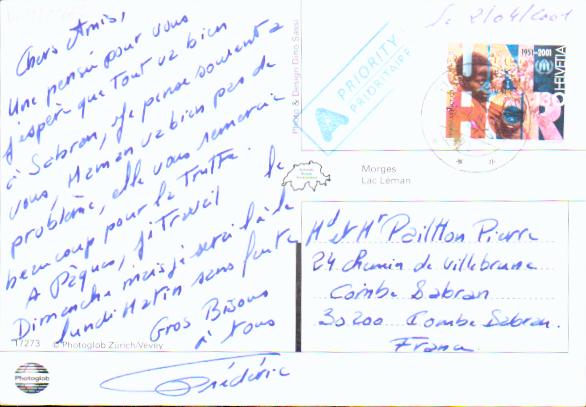 Le 2/04/2001
Chers Amis,
Une pensée pour vous
J'espère que tout va bien
à Sabran, je pense souvent a
vous, Maman va bien pas de
problème, elle vous remercie
beaucoup pour la Truffe.
A Pâques, j'travail le
Dimanche mais je serai là le
lundi Matin sans faute
Gros Bisous
à tous
Frédéric
17273 © Photoglob Zürich/Vevey
Photoglob
Photo & Design Dino Sassi
PRIORITY
PRIORITAIRE
A
1951-2001
UNHCR
HELVETIA
Morges
Lac Léman
Md et Mr Pailhon Pierre
24 chemin de Villebrune
Combe Sabran
30200 Combe Sabran.
France